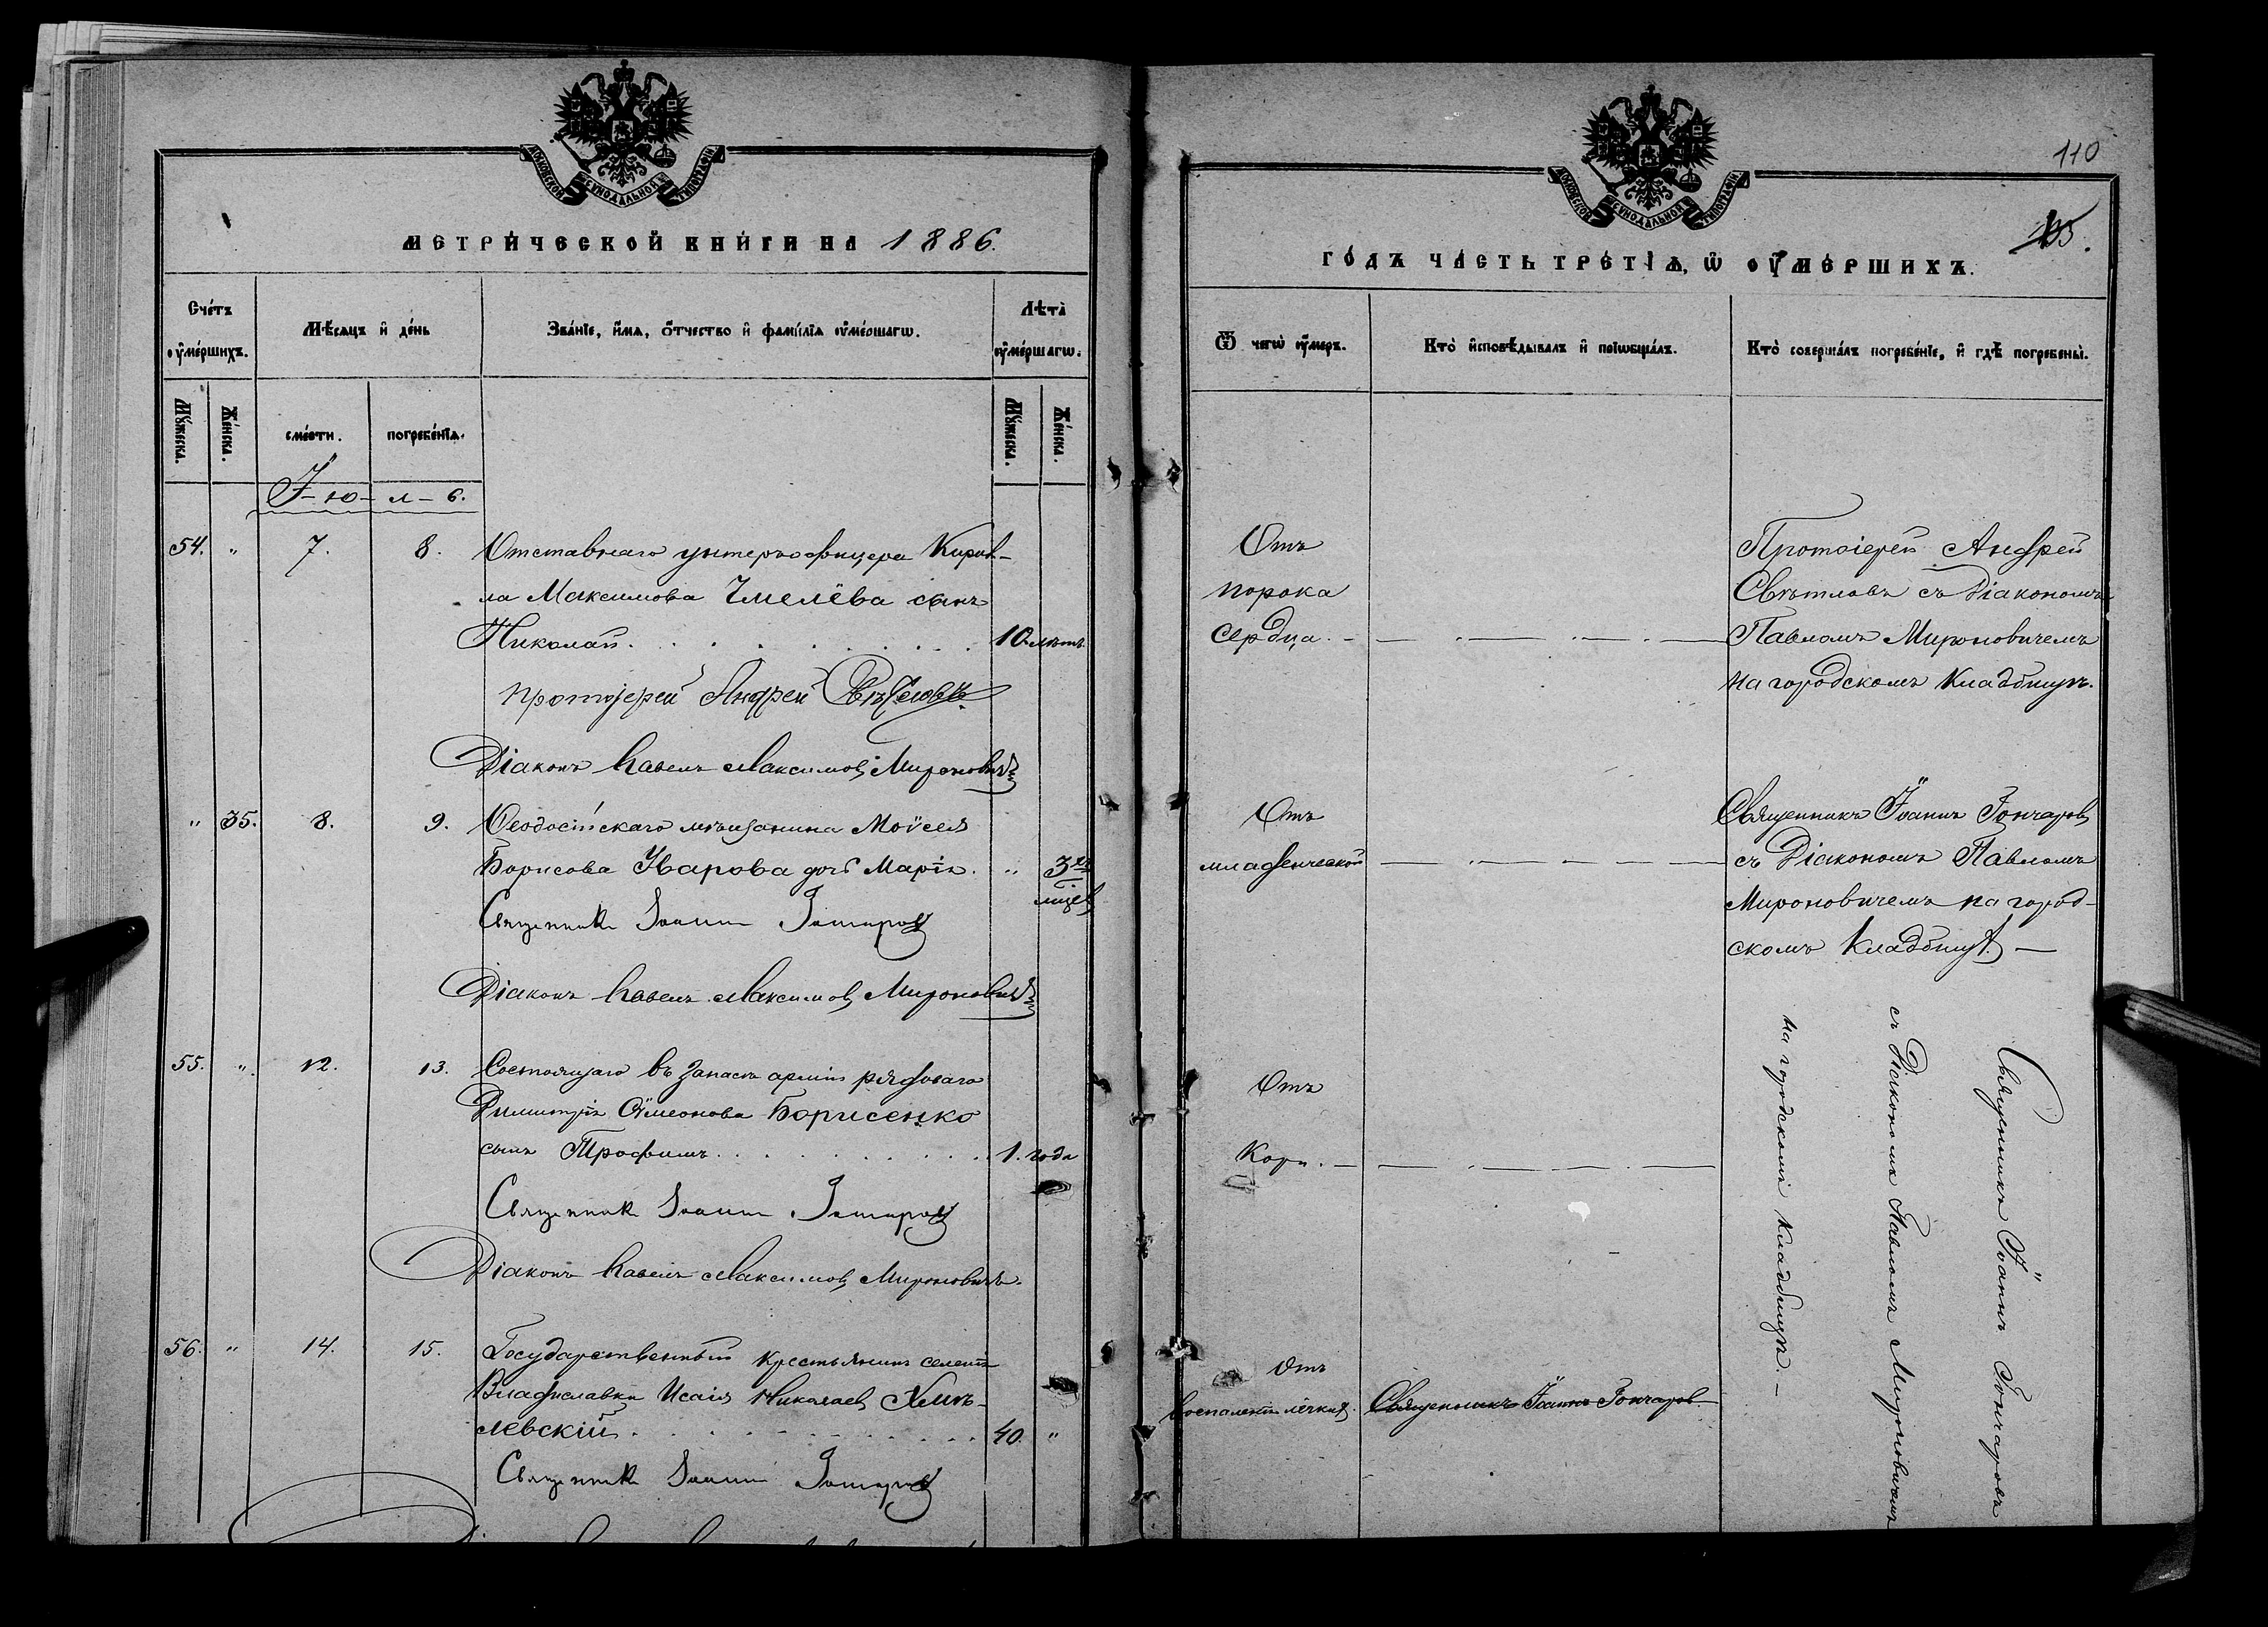 МОСКОВСКОЙ СѴНОДАЛЬНОЙ ТИПОГРАФІИ
МЕТРИЧЕСКОЙ КНИГИ НА 1886.
Счетъ оумершихъ.
Мѣсяцъ и день
Званіе, имя, отчество и фамилія оумершагѡ.
Лѣта оумершагѡ.
Мужеска.
Женска.
смерти.
погребенія.
Мужеска.
Женска.
І-ю-л-ь.
54. " 7. 8. Отставнаго унтеръ-офицера Кирил-
ла Максимова Чмелёва сынъ
Николай. 10 лѣтъ.
Протоіерей Андрей Свѣтловъ.
Діаконъ Павелъ Максимовъ Мироновичъ
" 35. 8. 9. Ѳеодосійскаго мѣщанина Моѵсея
Борисова Уварова дочь Марія. " 3хъ
мцев
Священникъ Іоаннъ Гончаровъ
Діаконъ Павелъ Максимовъ Мироновичъ
55. " 12. 13. Состоящаго въ запасѣ арміи рядоваго
Димитрія Сѵмеонова Борисенко
сынъ Трофимъ. 1. года
Священникъ Іоаннъ Гончаровъ
Діаконъ Павелъ Максимовъ Мироновичъ.
56. " 14. 15. Государственный крестьянинъ селенія
Владиславки Исаія Николаевъ Хмѣ-
левскій. 40. "
Священникъ Іоаннъ Гончаровъ
110
МОСКОВСКОЙ СѴНОДАЛЬНОЙ ТИПОГРАФІИ
105.
ГОДЪ ЧАСТЬ ТРЕТІЯ, Ѡ ОУМЕРШИХЪ.
Ѿ чегѡ оумеръ.
Кто исповѣдывалъ и пріѡбщалъ.
Кто совершалъ погребеніе, и гдѣ погребены.
Отъ
порока
сердца.
Протоіерей Андрей
Свѣтловъ съ Діакономъ
Павломъ Мироновичемъ
на городскомъ кладбищѣ.
Отъ
младенческой
Священникъ Іоаннъ Гончаровъ
съ Діакономъ Павломъ
Мироновичемъ на город-
скомъ кладбищѣ. —
Отъ
Кори.
Отъ
воспаленія лёгкихъ.
Священникъ Іоаннъ Гончаровъ
Священникъ Іоаннъ Гончаровъ
съ Діакономъ Павломъ Мироновичемъ
на городскомъ кладбищѣ. —